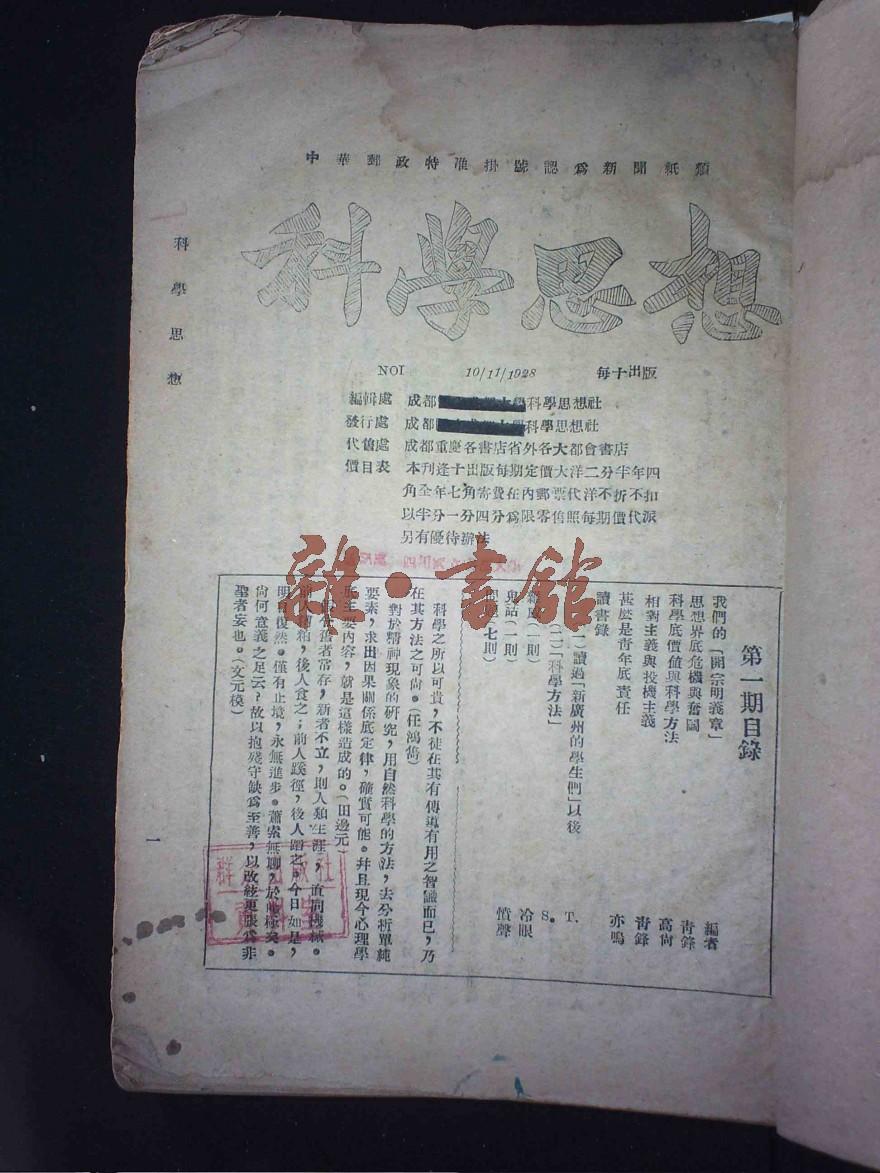 中華郵政特准掛號認爲新聞紙類
科學思想
科學思想
NO1 10/11/1928 每十出版
編輯處 成都 科學思想社
發行處 成都 科學思想社
代售處 成都重慶各書店省外各大都會書店
價目表 本刊逢十出版每期定價大洋二分半年四
角全年七角寄費在內郵票代洋不折不扣
以半分一分四分爲限零售照每期價代派
另有優待辦法
雜·書館
第一期目錄
我們的「開宗明義章」 編者
思想界底危機與奮鬭 青鋒
科學底價值與科學方法 高尙
相對主義與投機主義 青鋒
甚麽是靑年底責任 亦鳴
讀書錄
(一)讀過「新廣州的學生們」以後 T.
(二)「科學方法」 S.
(一則) 冷眼
鬼話(一則) 憤聲
(七則)
科學之所以可貴,不徒在其有傳導有用之智識而已,乃
在其方法之可尚。(任鴻雋)
對於精神現象的研究,用自然科學的方法,去分析單純
要素,求出因果關係底定律,確實可能。幷且現今心理學
主要內容,就是這樣造成的。(田邊元)
舊者常存,新者不立,則人類生涯,直同機械。
前人糟粕,後人食之;前人蹊徑,後人蹈之。今日如是,
明日復然。僅有止境,永無進步。蕭索無聊,於此極矣。
尙何意義之足云?故以抱殘守缺爲至善,以改絃更張爲非
聖者妄也。(文元模)
一